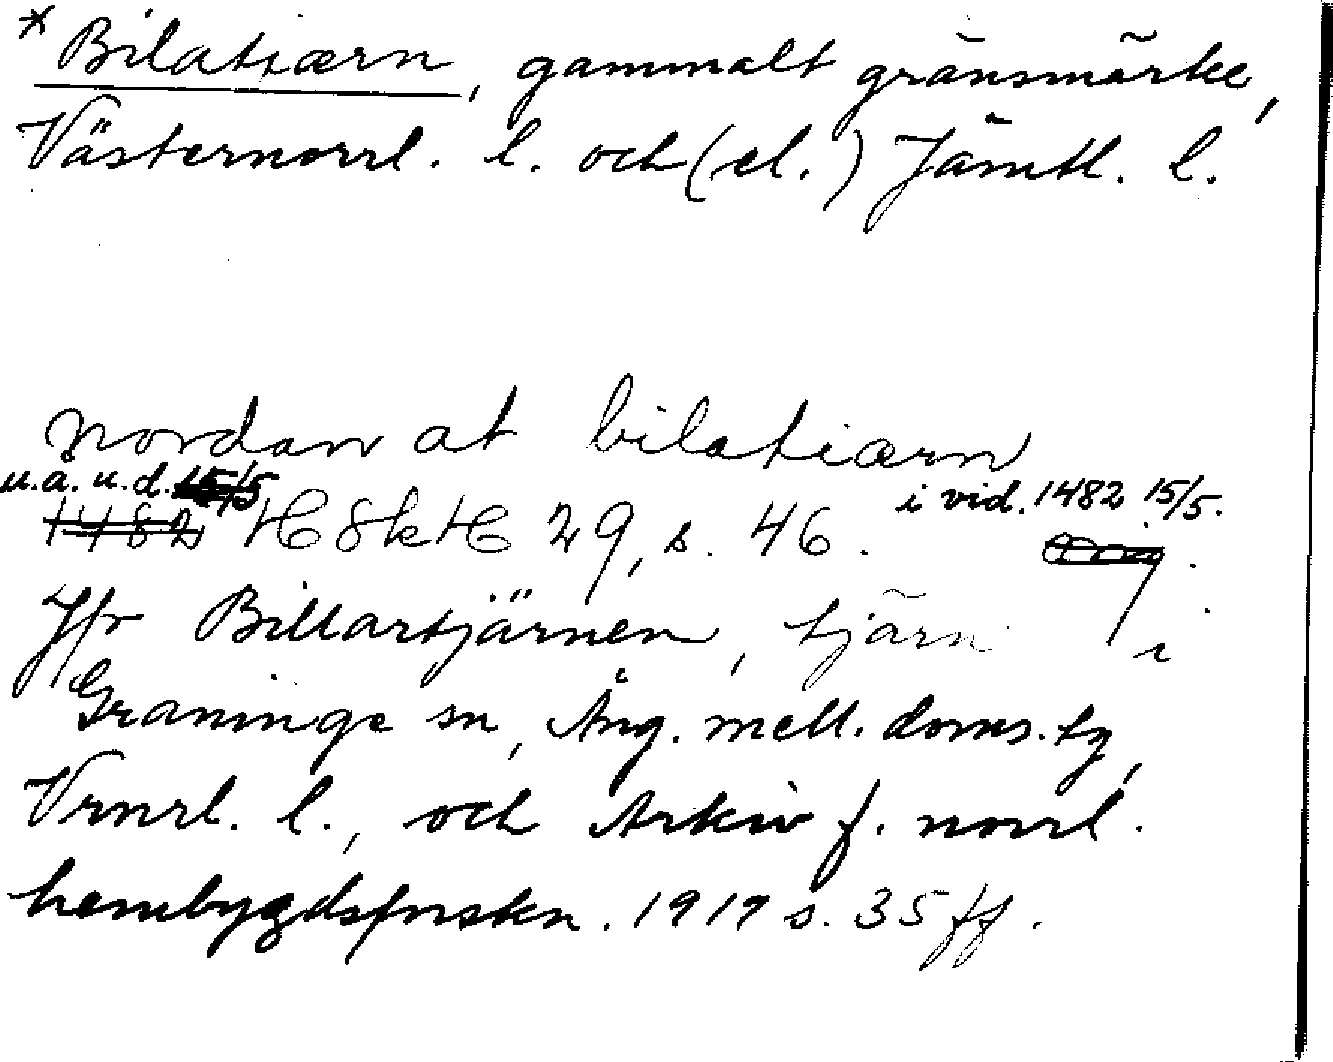 * Bilatiærn, gammalt gränsmärke,
Västernorrl. l. och (el.) Jämtl. l.
nordan at bilatiærn
u.a. u.d. 15/5 i vid. 1482 15/5.
1482 HSkH 29, s. 46.
Jfr Billartjärnen, tjärn i
Graninge sn, Ång. mell. doms. tg,
Vrnrl. l., och Arkiv f. norrl.
hembygdsforskn. 1917 s. 35 ff.